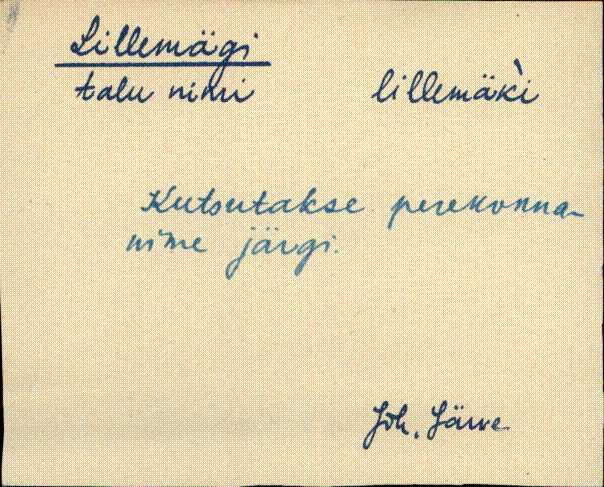 Lillemägi
talu nimi lillemäk̀i
Kutsutakse perekonna-
nime järgi.
Joh. Järve